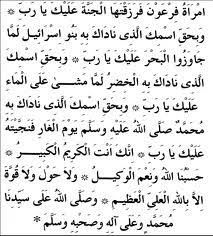 امْرَاَةُ فِرْعَوْنَ فَرَزَقْتَهَا الْجَنَّةَ عَلَيْكَ يَا رَبِّ *
وَبِحَقِّ اسْمِكَ الَّذِى نَادَاكَ بِهِ بَنُو اسْرَائِيلَ لَمَّا
جَاوَزُوا الْبَحْرَ عَلَيْكَ يَا رَبِّ * وَبِحَقِّ اسْمِكَ
الَّذِى نَادَاكَ بِهِ الْخَضِرُ لَمَّا مَشَىْ عَلَى الْمَاءِ
عَلَيْكَ يَا رَبِّ * وَبِحَقِّ اسْمِكَ الَّذِى نَادَاكَ بِهِ
مُحَمَّدٌ صَلَّى اللهُ عَلَيْهِ وَسَلَّمَ يَوْمَ الْغَارِ فَنَجَّيْتَهُ
عَلَيْكَ يَا رَبِّ * اِنَّكَ اَنْتَ الْكَرِيمُ الْكَبِيرُ *
حَسْبُنَا اللهُ وَنِعْمَ الْوَكِيلُ * وَلَا حَوْلَ وَلَا قُوَّةَ
اِلَّا بِاللهِ الْعَلِىِّ الْعَظِيمِ * وَصَلَّى اللهُ عَلَى سَيِّدِنَا
مُحَمَّدٍ وَعَلَى آلِهِ وَصَحْبِهِ وَسَلَّمَ *